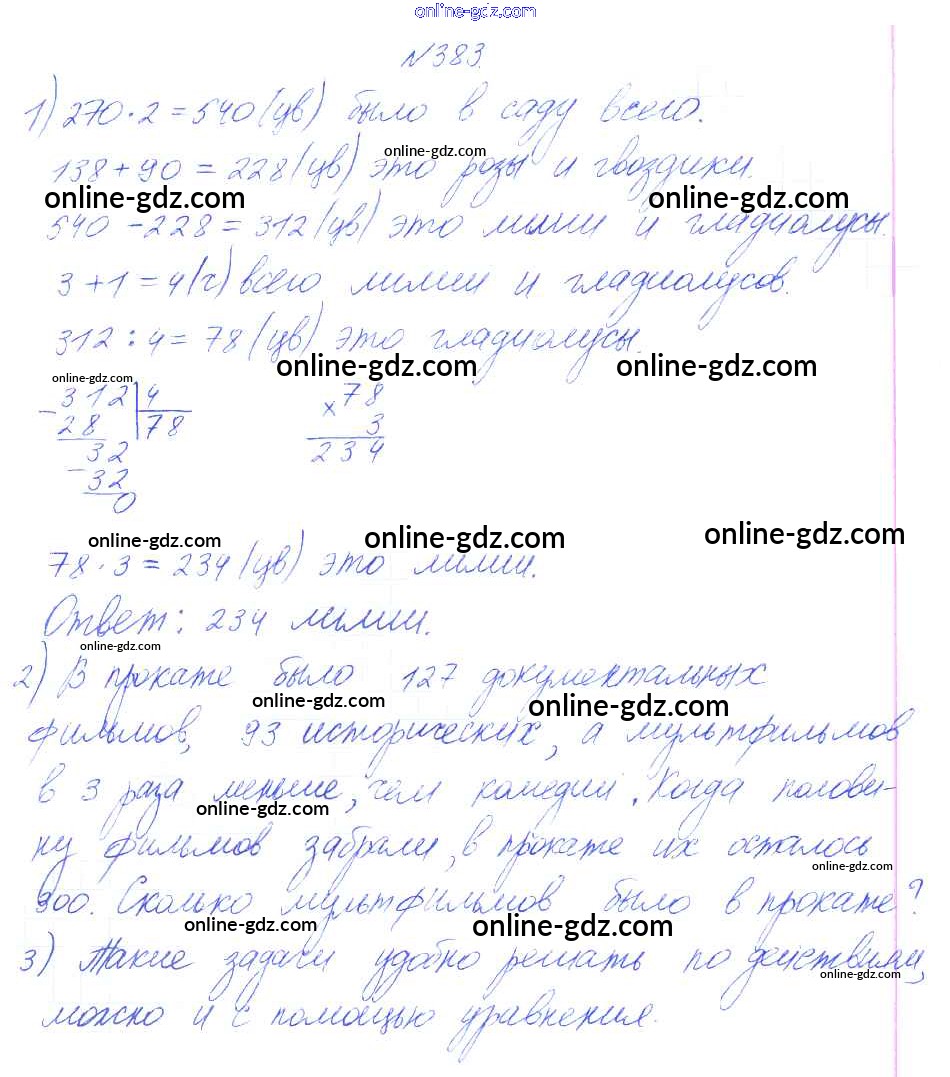 online-gdz.com
№383.
1) 270·2=540(цв) было в саду всего.
online-gdz.com
138+90=228(цв) это розы и гвоздики.
online-gdz.com online-gdz.com
540-228=312(цв) это лилии и гладиолусы.
3+1=4(ч) всего лилии и гладиолусов.
312:4=78(цв) это гладиолусы.
online-gdz.com online-gdz.com
online-gdz.com
-312|4 78
28 |78 x 3
32 234
-32
0
online-gdz.com online-gdz.com online-gdz.com
78·3=234(цв) это лилии.
Ответ: 234 лилии.
online-gdz.com
2) В прокате было 127 документальных
online-gdz.com online-gdz.com
фильмов, 93 исторических, а мультфильмов
в 3 раза меньше, чем комедий. Когда полови-
online-gdz.com
ну фильмов забрали, в прокате их осталось
online-gdz.com
300. Сколько мультфильмов было в прокате?
online-gdz.com online-gdz.com
3) Такие задачи удобно решать по действиям,
online-gdz.com
можно и с помощью уравнения.